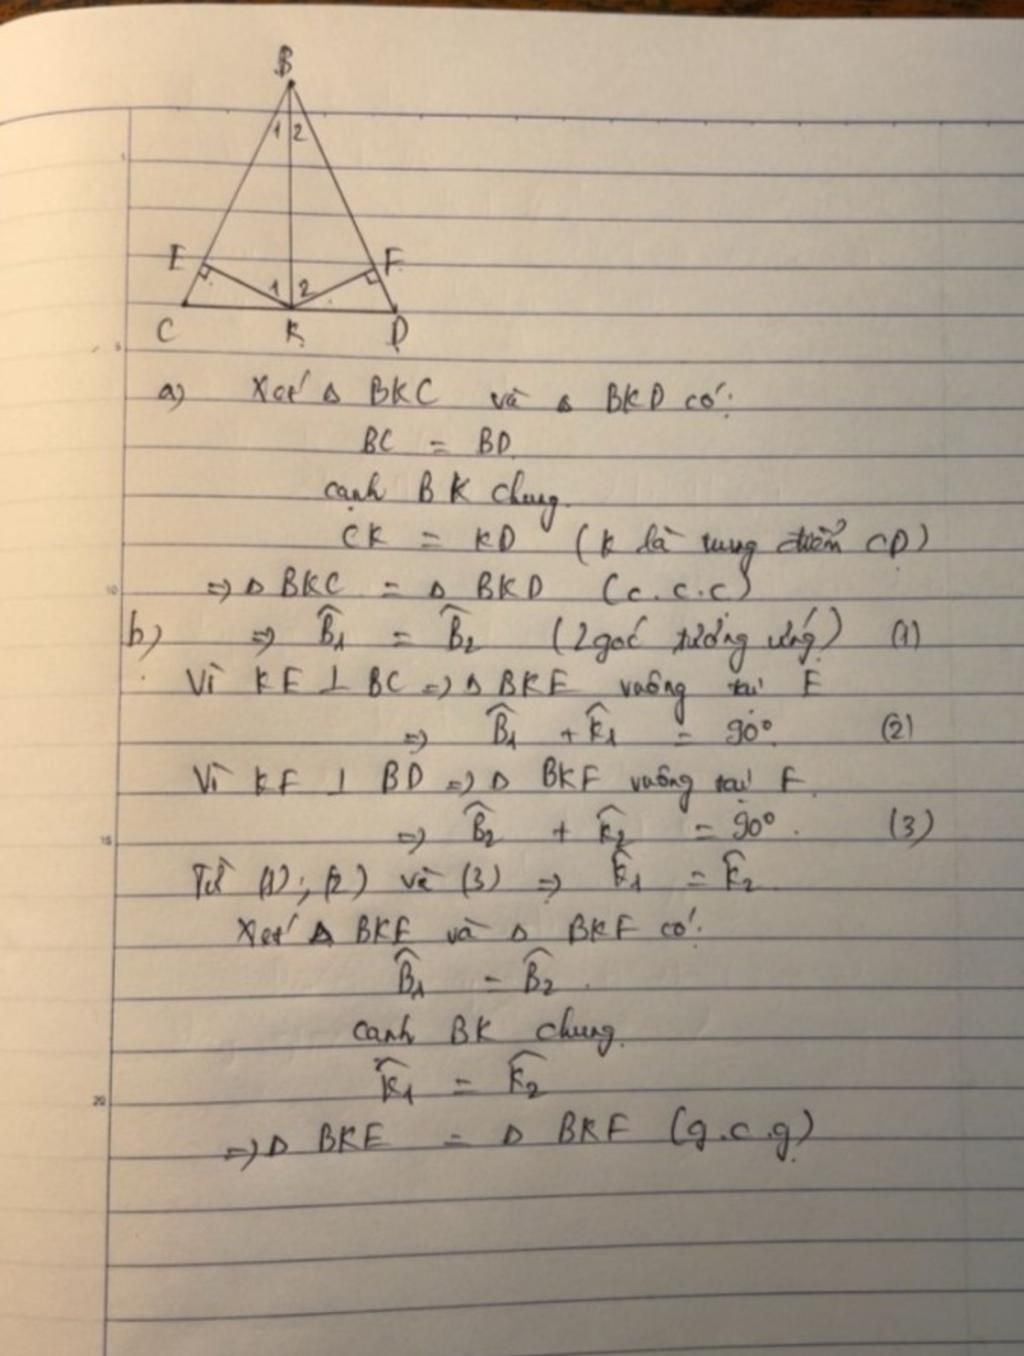 B
1 2
E F
1 2
C K D
a) Xét Δ BKC và Δ BKD có:
BC = BD
cạnh BK chung.
CK = KD (K là trung điểm CD)
=> Δ BKC = Δ BKD (c.c.c)
b) => B̂₁ = B̂₂ (2 góc tương ứng) (1)
Vì KE ⊥ BC => Δ BKE vuông tại E
=> B̂₁ + K̂₁ = 90° (2)
Vì KF ⊥ BD => Δ BKF vuông tại F.
=> B̂₂ + K̂₂ = 90°. (3)
Từ (1); (2) và (3) => K̂₁ = K̂₂
Xét Δ BKE và Δ BKF có:
B̂₁ = B̂₂.
cạnh BK chung.
K̂₁ = K̂₂
=> Δ BKE = Δ BKF (g.c.g)